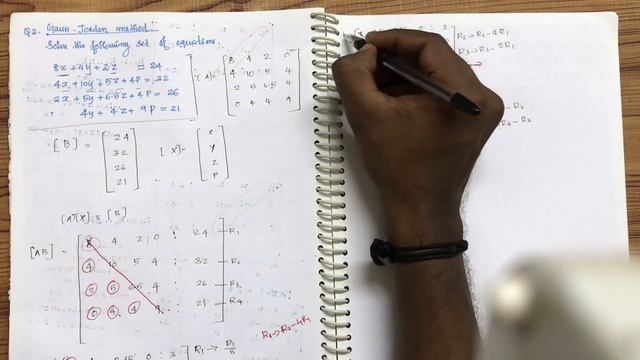 Q2. Gauss-Jordan method.
Solve the following set of equations.
8x + 4y + 2z = 24
4x + 10y + 5z + 4P = 32
2x + 5y + 6.5z + 4P = 26
4y + 4z + 9P = 21
[A] =
8 4 2 0
4 10 5 4
2 5 6.5 4
0 4 4 9
[B] =
24
32
26
21
[X] =
x
y
z
P
[A][X] = [B]
[AB] =
8 4 2 0 : 24 — R1
4 10 5 4 : 32 — R2
2 5 6.5 4 : 26 — R3
0 4 4 : 21 — R4
R2 → R2 - 4R1
0.25 0 : 3 R1 → R1/8
0 : 3
R2 → R2 - 4R1
R3 → R3 - 2R1
- R2
R4 - R2